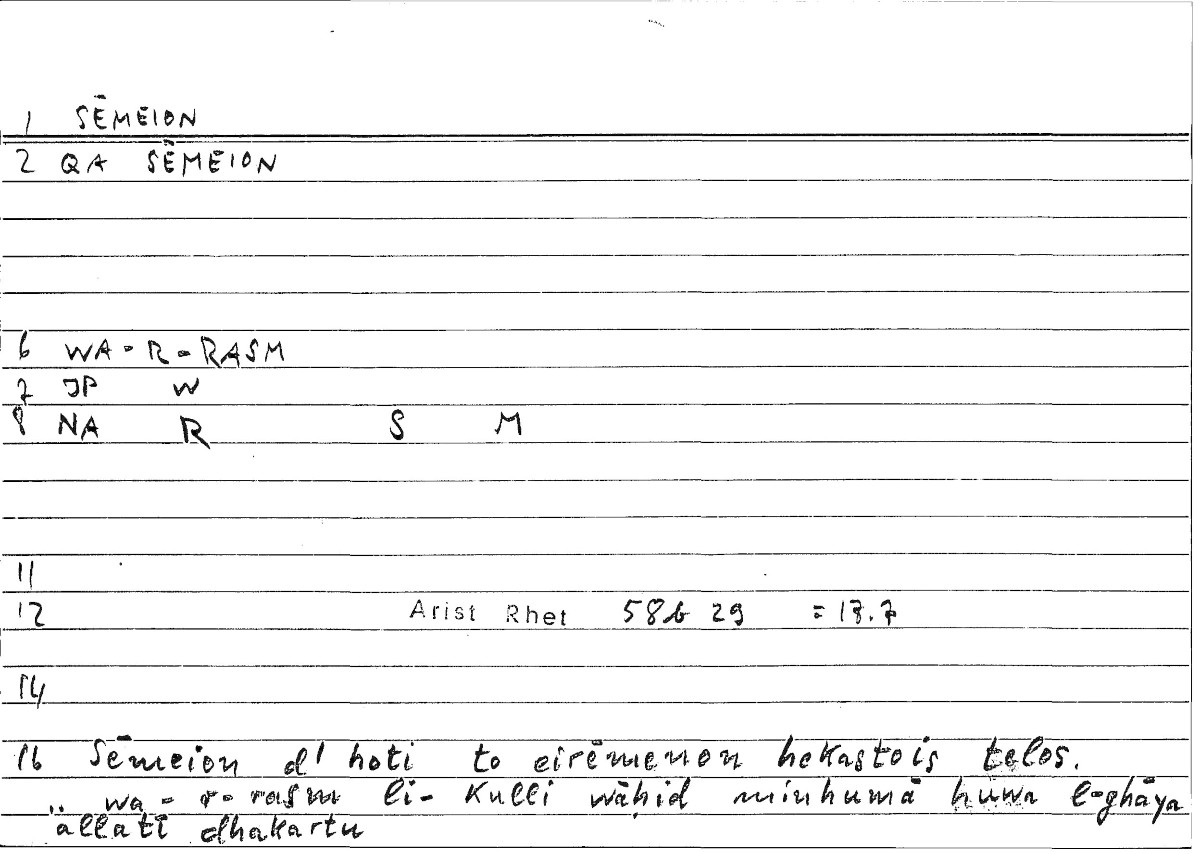 1 SĒMEION
2 QA SĒMEION
6 WA-R-RASM
7 JP W
8 NA R S M
11
12 Arist Rhet 58b 29 = 17.7
14
16 Sēmeion d' hoti to eirēmenon hekastois telos.
" wa-r-rasm li-kulli wāḥid minhumā huwa l-ghāya
allatī dhakartu